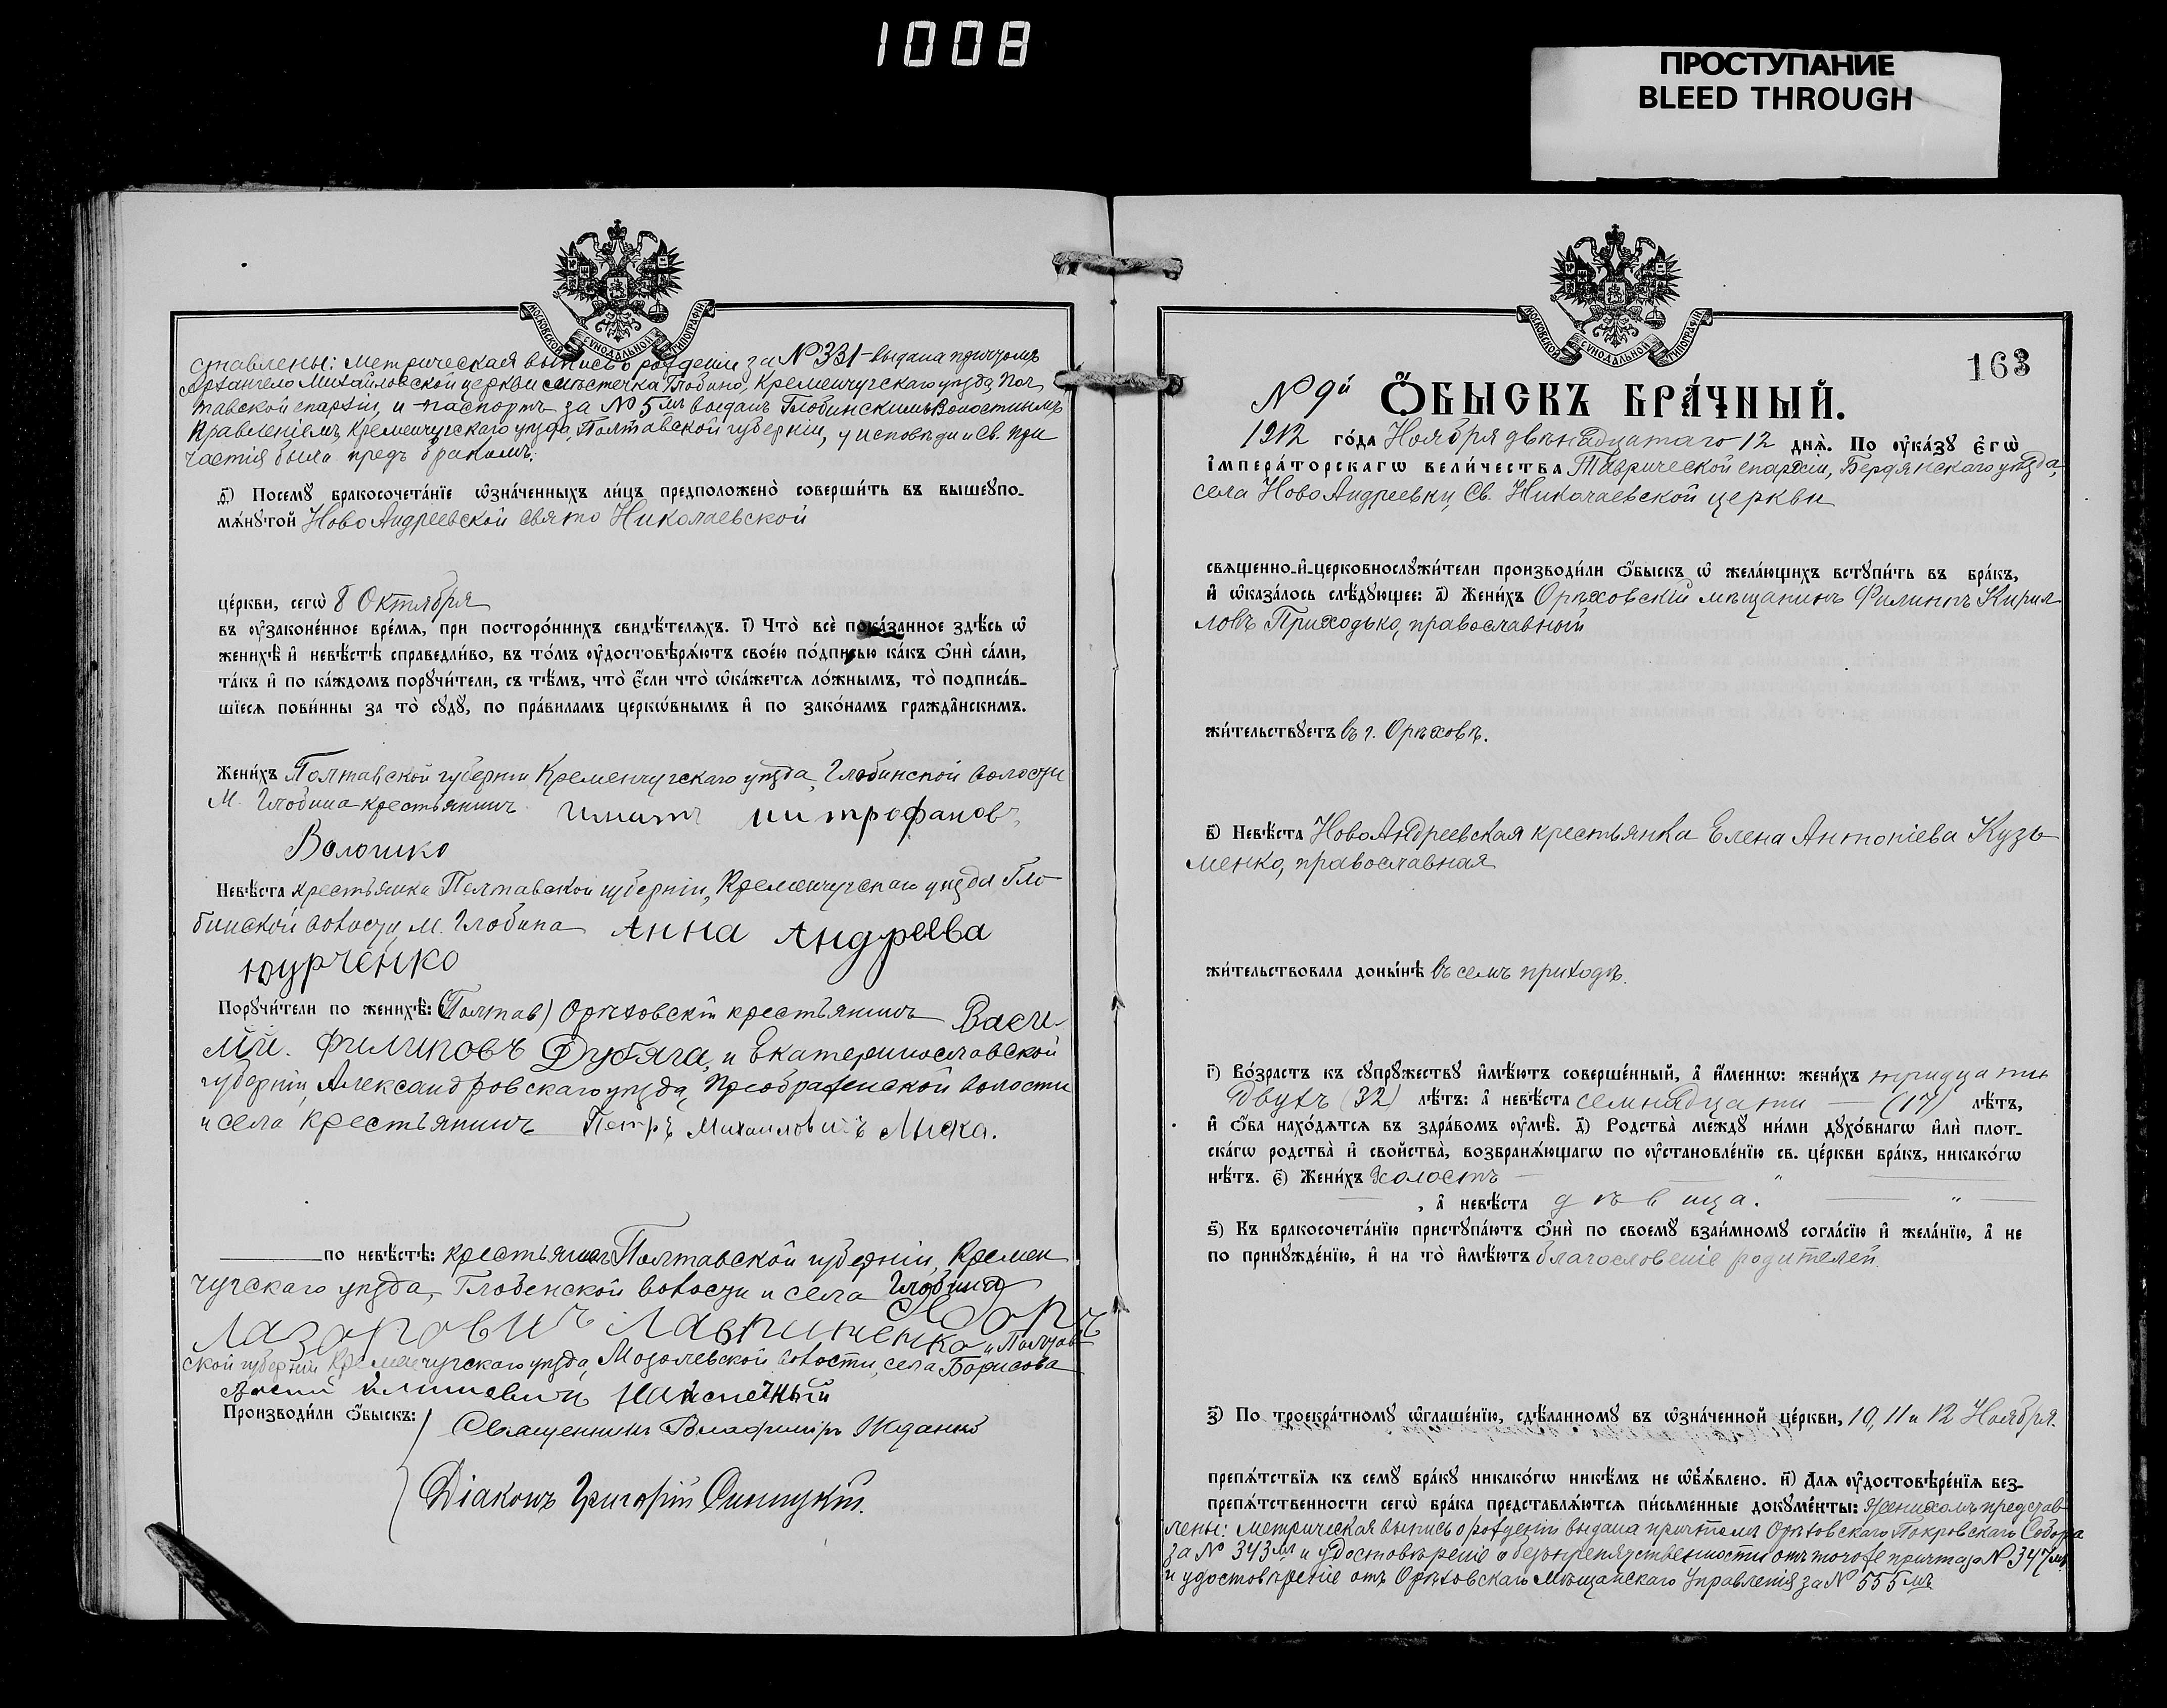 1008
ПРОСТУПАНИЕ
BLEED THROUGH
МОСКОВСКОЙ СУНОДАЛЬНОЙ ТИПОГРАФІИ
ставлены: метрическая выпись о рожденіи за № 331 – выдана причтомъ
Архангело Михайловской церкви мѣстечка Глобино, Кременчугскаго уѣзда, Пол
тавской епархіи, и паспортъ за № 5мъ выданъ Глобинскимъ Волостнымъ
Правленіемъ, Кременчугскаго уѣзда, Полтавской губерніи, у исповѣди и Св. При
частія были предъ бракомъ.
д҃) Посемꙋ бракосочета́нїе ѡ҆зна́ченныхъ ли́цъ предположено̀ соверши́ть въ вышеупо-
мѧ́нꙋтой Ново Андреевской свято Николаевской
це́ркви, сегѡ̀ 8 Октября
въ ᲂу҆законе́нное вре́мѧ, при посторо́ннихъ свидѣ́телѧхъ. і҃) Что̀ всѐ пока́занное здѣ́сь ѡ҆
женихѣ̀ и҆ невѣ́стѣ справедли́во, въ то́мъ ᲂу҆достовѣрѧ́ютъ свое́ю по́дписью ка́къ ѻ҆нѝ са́ми,
та́къ и҆ по ка́ждомъ порꙋчи́тели, съ тѣ́мъ, что̀ є҆́сли что̀ ѡ҆ка́жетсѧ ло́жнымъ, то̀ подписа́в-
шїесѧ пови́нны за то̀ сꙋдꙋ̀, по пра́виламъ церкѡ́внымъ и҆ по зако́намъ гражда̑нскимъ.
Жени́хъ Полтавской губерніи Кременчугскаго уѣзда, Глобинской волости
М. Глобина крестьянинъ Игнатъ митрофановъ
Волошко
Невѣ́ста крестьянка Полтавской губерніи, Кременчугскаго уѣзда Гло
бинской волости, м. Глобина Анна Андреева
Юрченко
Порꙋчи́тели по женихѣ̀: (Полтав) Орѣховскій крестьянинъ Васи
лій. Филиповъ Дубяга, и Екатеринославской
губерніи, Александровскаго уѣзда, Преображенской волости
и села крестьянинъ Петръ Михаиловичъ Лыска.
по невѣ́стѣ: крестьянинъ Полтавской губерніи, Кремен
чугскаго уѣзда, Глобенской волости и села Глобина
Лазоровичъ Лавриненко и Полтав
ской губерніи Кременчугскаго уѣзда, волости, села Борисова
Производи́ли ѻ҆́быскъ: Священникъ Владиміръ Жданко
Діаконъ Григорій Синицкій.
МОСКОВСКОЙ СУНОДАЛЬНОЙ ТИПОГРАФІИ
163
№ 9й Ѻ҆́БЫСКЪ БРА́ЧНЫЙ.
1912 го́да Ноября двѣнадцатаго 12 днѧ̀. По ᲂу҆ка́зꙋ є҆гѡ̀
і҆мпера́торскагѡ вели́чества Таврической епархіи, Бердянскаго уѣзда,
села Ново Андреевки, Св. Николаевской церкви
свѧщенно-и҆-церковнослꙋжи́тели производи́ли ѻ҆́быскъ ѡ҆ жела́ющихъ встꙋпи́ть въ бра́къ,
и҆ ѡ҆каза́лось слѣ́дꙋющее: а҃) Жени́хъ Орѣховскій мѣщанинъ Филиппъ Кирил
ловъ Приходько, православный
жи́тельствꙋетъ въ г. Орѣховѣ.
в҃) Невѣ́ста Ново Андреевская крестьянка Елена Антоніева Кузь
менко, православная
жи́тельствовала донынѣ въ семъ приходѣ.
г҃) Во́зрастъ къ сꙋпрꙋ́жествꙋ и҆мѣ́ютъ соверше́нный, а҆ и҆́меннѡ: жени́хъ тридцати
Двухъ (32) лѣ́тъ: а҆ невѣ́ста семнадцати — (17) лѣ́тъ,
и҆ ѻ҆́ба нахо́дѧтсѧ въ здра́вомъ ᲂу҆мѣ̀. д҃) Родства̀ ме́ждꙋ ни́ми дꙋхо́внагѡ и҆лѝ плот-
ска́гѡ родства̀ и҆ сво́йства̀, возбранѧ́ющагѡ по ᲂу҆становле́нїю св. це́ркви бра́къ, никако́гѡ
нѣ́тъ. є҃) Жени́хъ холостъ — „ —
, а҆ невѣ́ста дѣвица. — „ —
ѕ҃) Къ бракосочета́нїю пристꙋпа́ютъ ѻ҆нѝ по своемꙋ̀ взаи́мномꙋ согла́сїю и҆ жела́нїю, а҆ не
по принꙋжде́нїю, и҆ на то̀ и҆мѣ́ютъ благословеніе родителей.
з҃) По троекра́тномꙋ ѡ҆глаше́нїю, сдѣ́ланномꙋ въ ѡ҆зна́ченной це́ркви, 10, 11 и 12 Ноября.
препѧ́тствїѧ къ семꙋ̀ бра́кꙋ никако́гѡ никѣ́мъ не ѡ҆б̾ѧ́влено. и҃) Длѧ ᲂу҆достовѣре́нїѧ без-
препѧ́тственности сегѡ̀ бра́ка представлѧ́ютсѧ пи́сьменные докꙋме́нты: Женихомъ представ
лены: метрическая выпись о рожденіи выдана причтомъ Орѣховскаго Покровскаго Собора
за № 343мъ и удостовѣреніе о безпрепядственности отъ того же причта за № 347мъ
и удостовѣреніе отъ Орѣховскаго Мѣщанскаго Управленія за № 555мъ